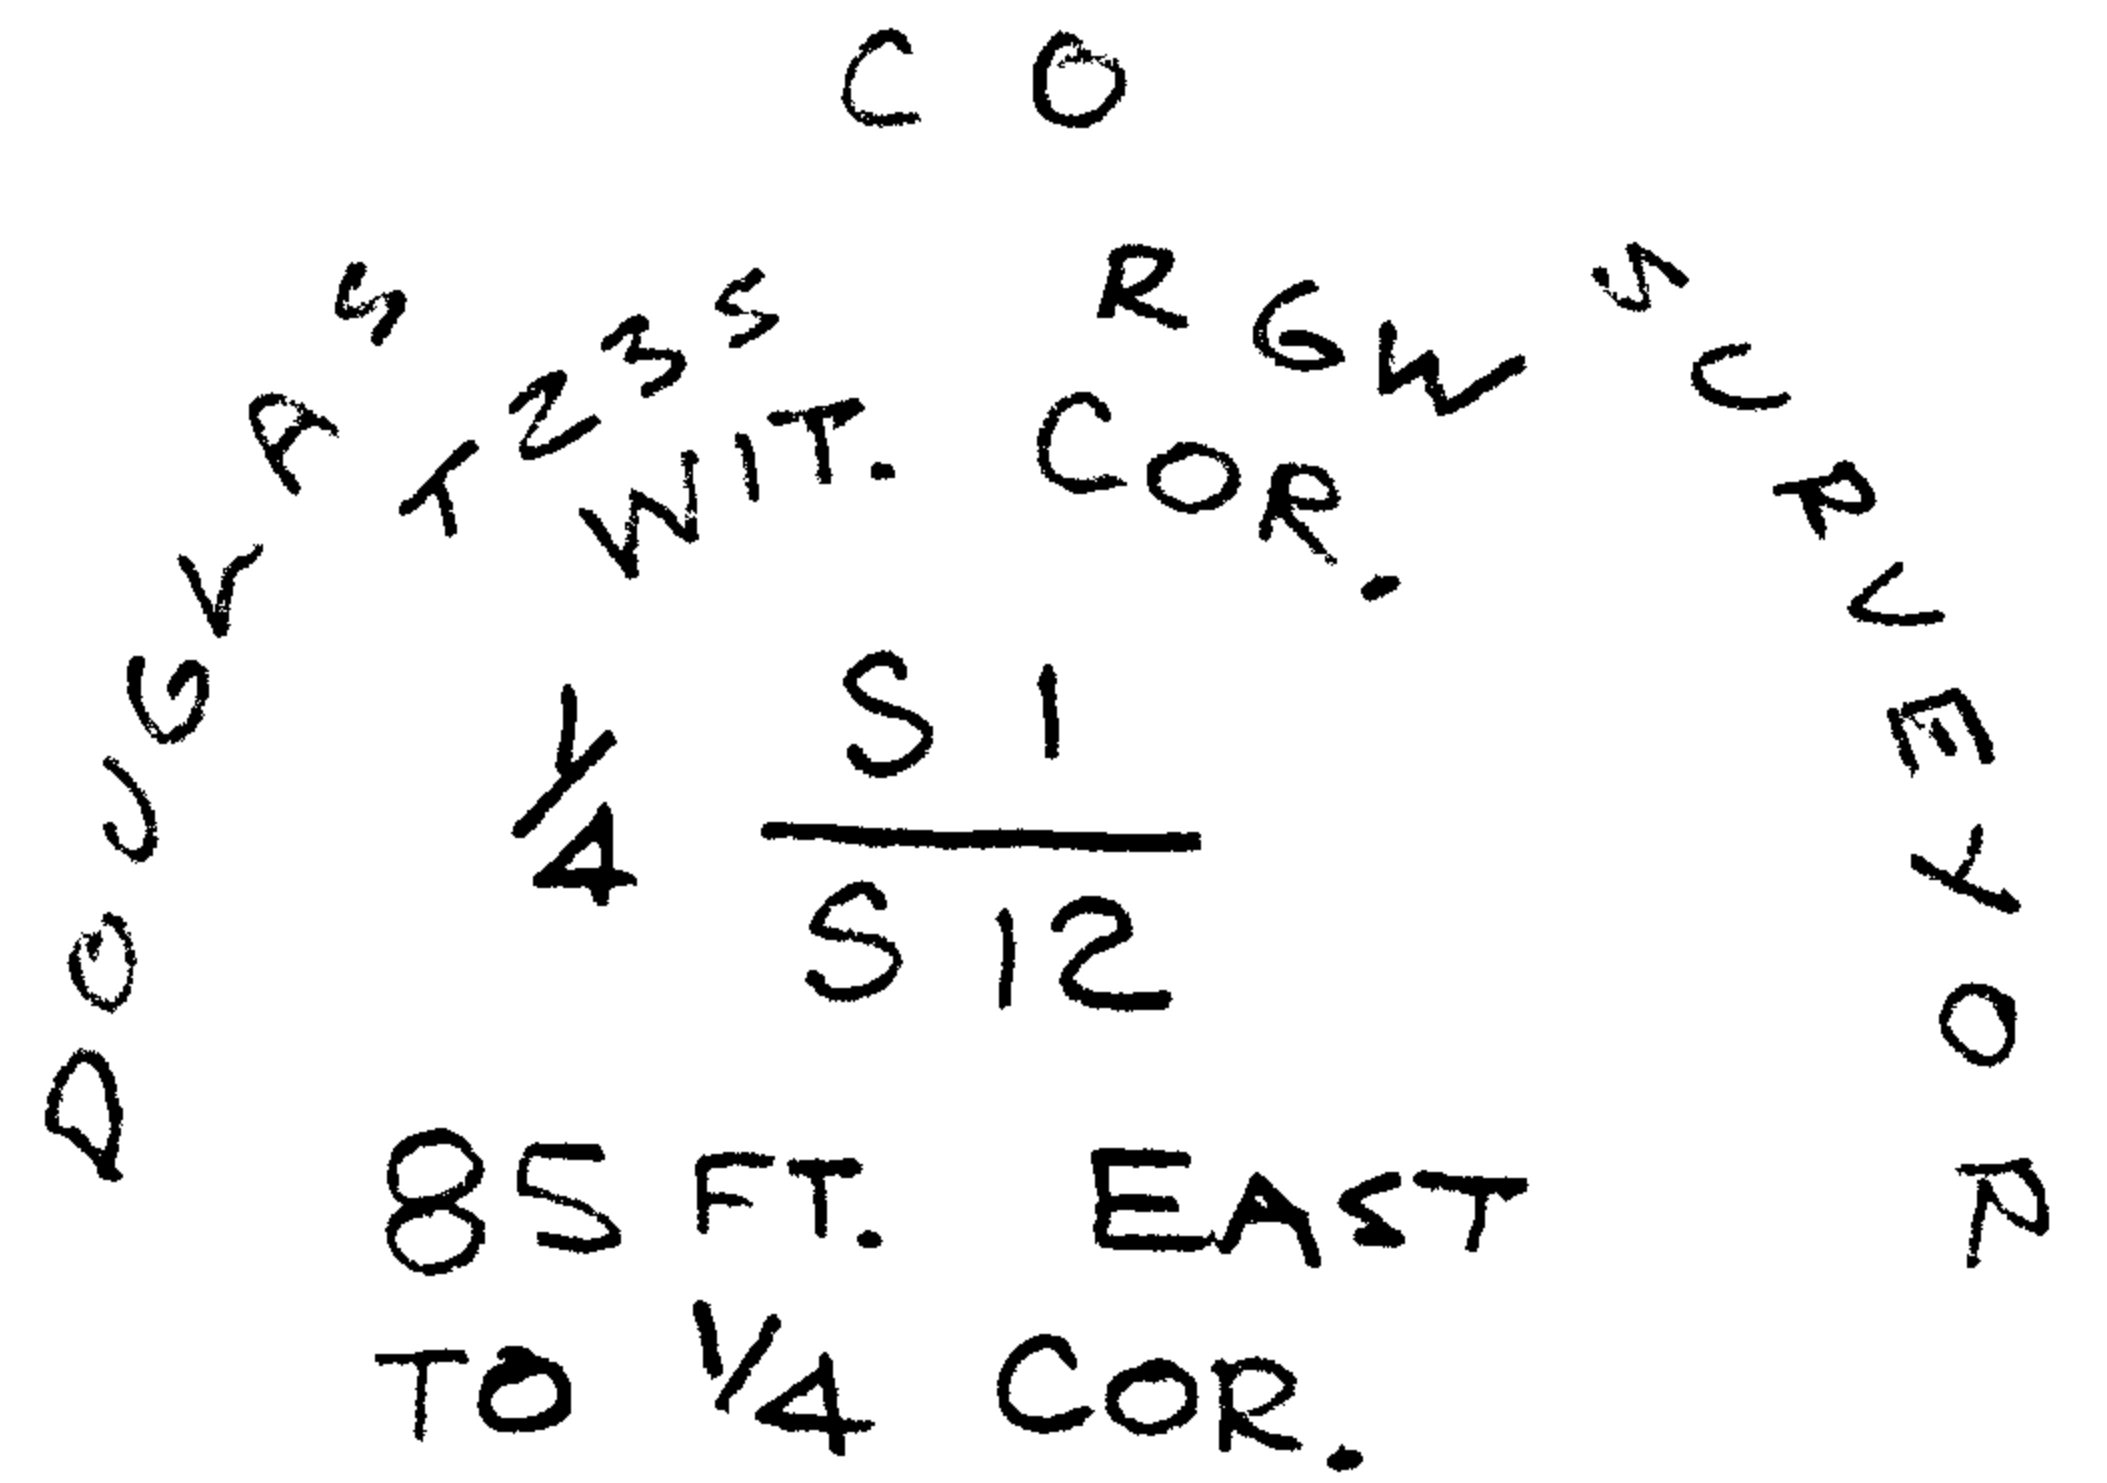 DOUGLAS CO SURVEYOR
T23S R6W
WIT. COR.
1/4 S1
S12
85 FT. EAST
TO 1/4 COR.